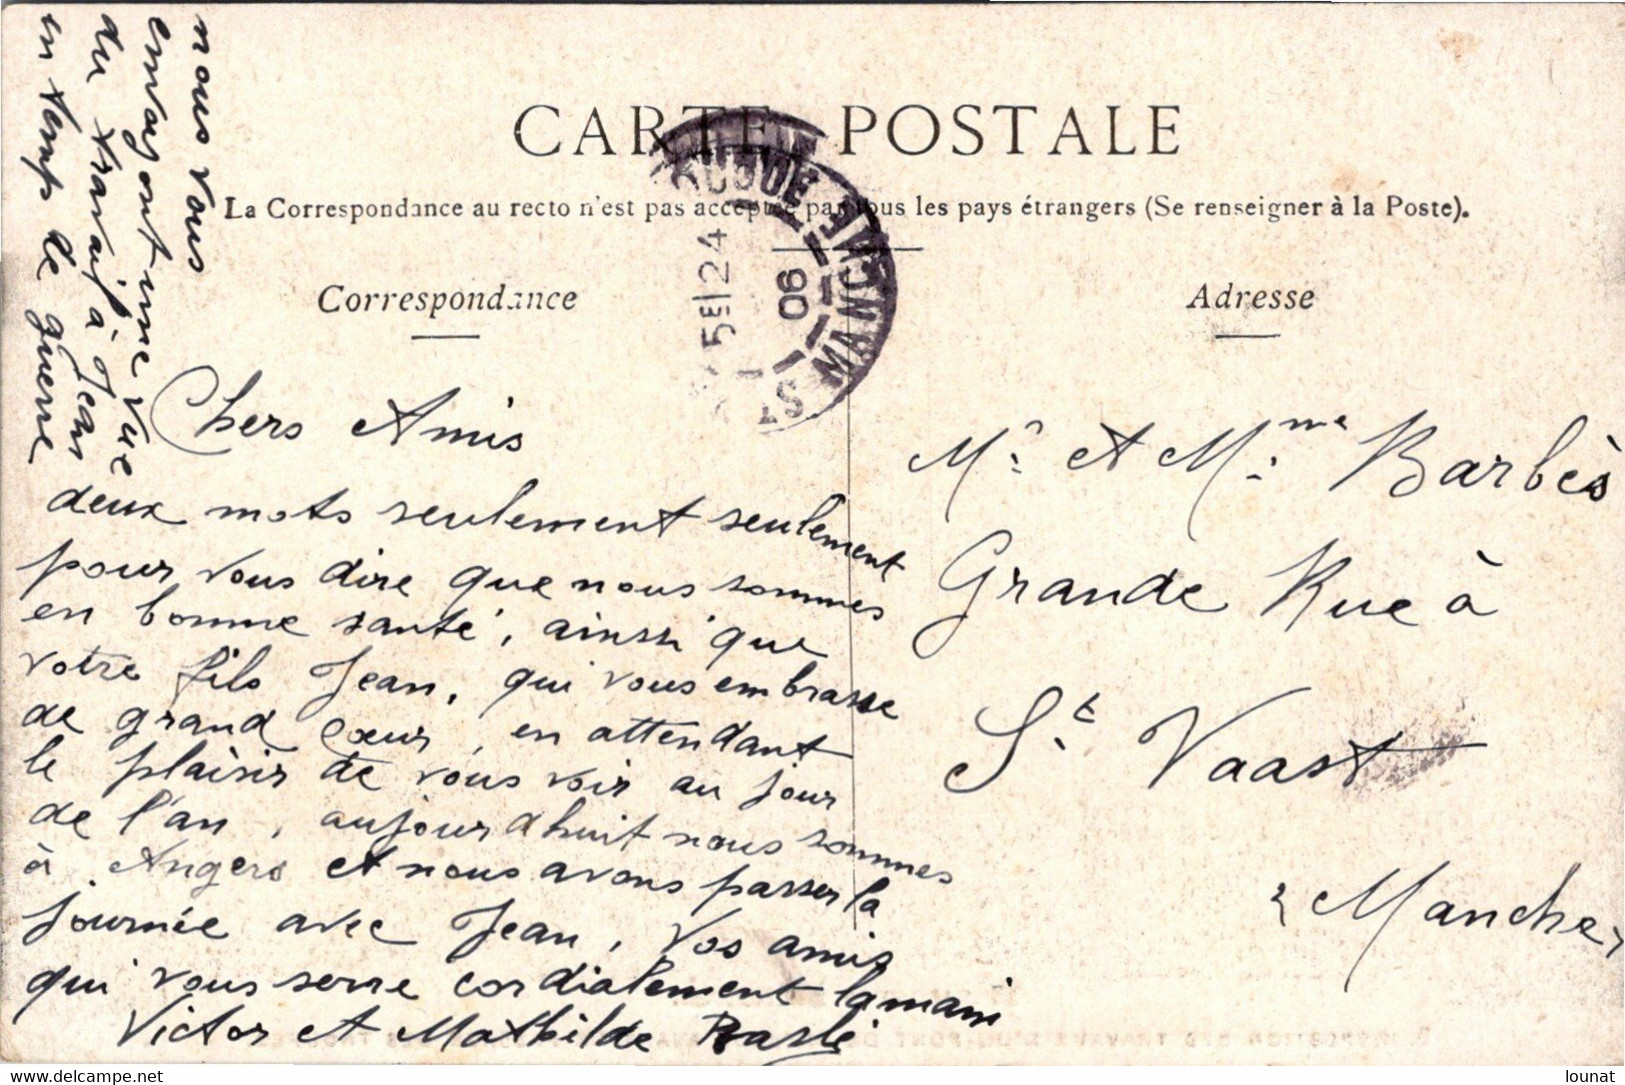 CARTE POSTALE
La Correspondance au recto n'est pas acceptée par tous les pays étrangers (Se renseigner à la Poste).
Correspondance
Adresse
nous vous
envayont une vue
du travaif à Jean
en temps de guerre
Chers Amis
deux mots seulement seulement
pour vous dire que nous sommes
en bonne santé, ainssi que
votre fils Jean, qui vous embrasse
de grand cœur, en attendant
le plaisir de vous voir au jour
de l'an, aujour d huit nous sommes
à Angers et nous avons passer la
journée avec Jean, Vos amis
qui vous serre cordialement la main
Victor et Mathilde
Mr et Mme Barbès
Grande Rue à
St Vaast
Manche
24
06
MANCHE
delcampe.net
lounat